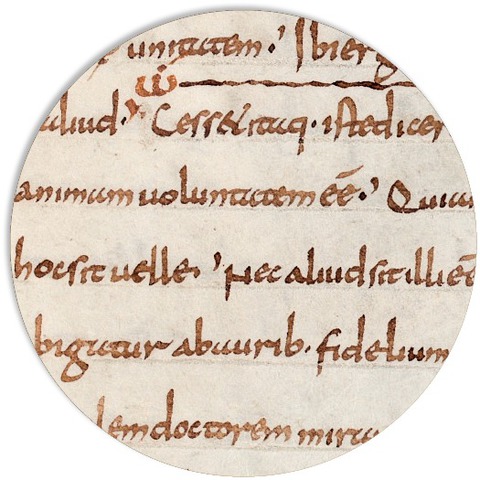 unitatem. Ibi erg
aliud. Cesset itaq. iste dicer
animam uoluntatem eē. Quia
hoc sit uelle. Nec aliud sit illi eē
bigatur ab aurib. fidelium
lem doctorem mira